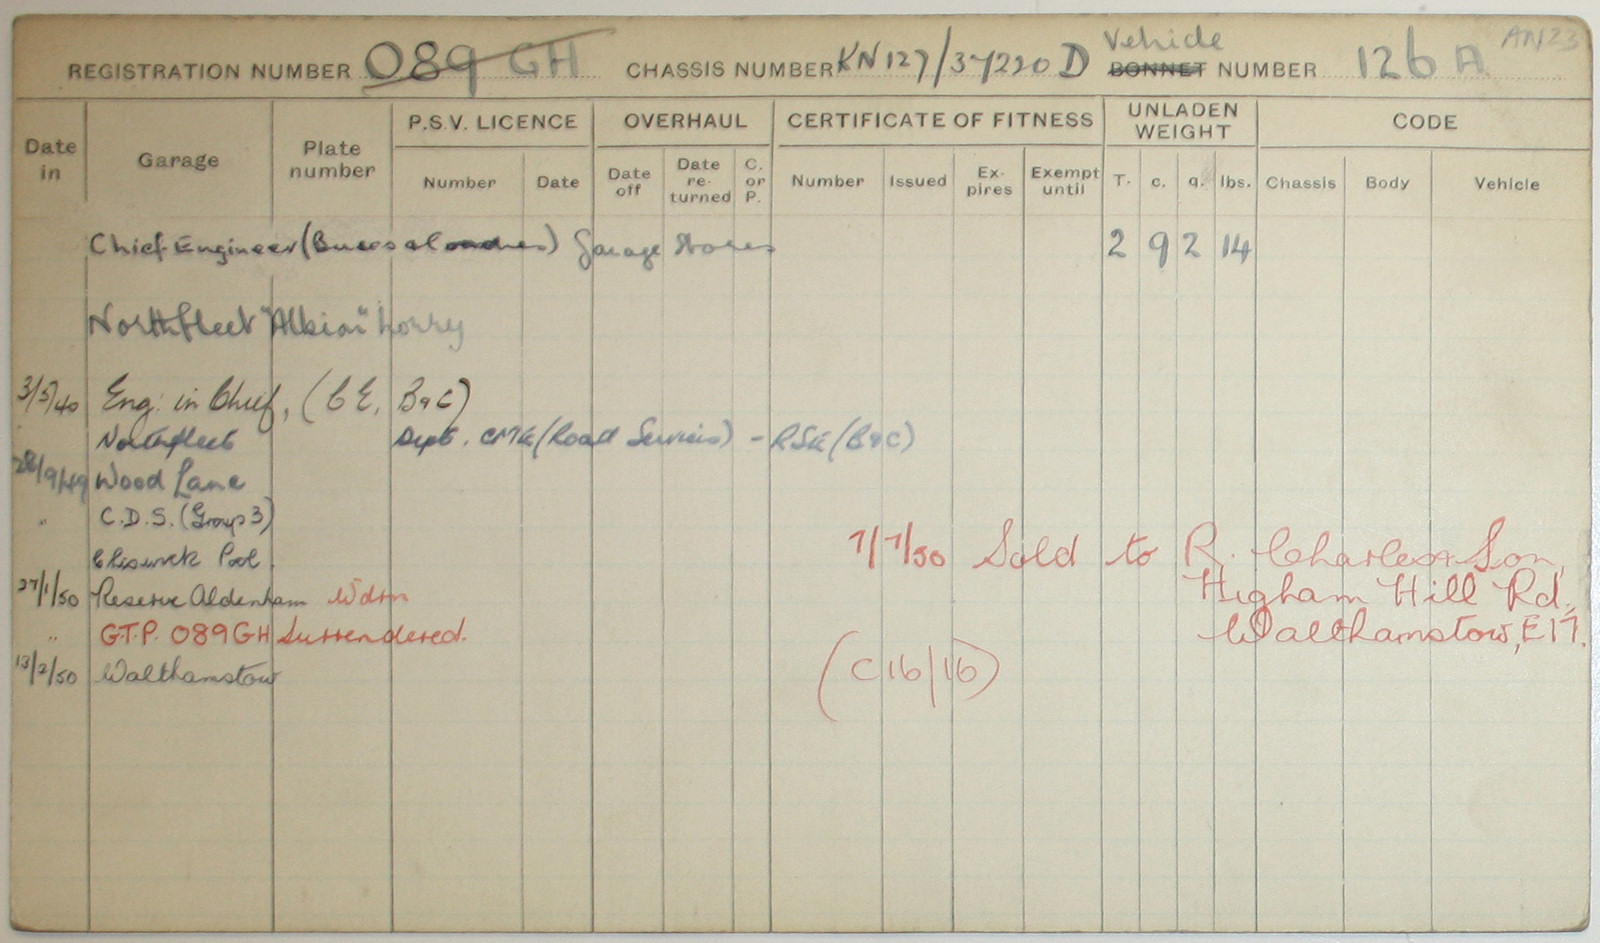 AN23
REGISTRATION NUMBER 089 GH CHASSIS NUMBER KN127/37220 D Vehicle BONNET NUMBER 126 A
Date in Garage Plate number P.S.V. LICENCE OVERHAUL CERTIFICATE OF FITNESS UNLADEN WEIGHT CODE
Number Date Date off Date re-turned C. or P. Number Issued Ex-pires Exempt until T. c. q. lbs. Chassis Body Vehicle
Chief Engineer (Buses & Coaches) Garage Stores 2 9 2 14
Northfleet "Albion" Lorry
3/5/40 Eng: in Chief, (CE, B&C)
Northfleet Dept. CME (Road Services) - RSE (B&C)
28/9/49 Wood Lane
" C.D.S. (Group 3)
Chiswick Pool
7/7/50 Sold to R. Charles & Son,
27/1/50 Reserve Aldenham Wdrn Higham Hill Rd.,
" G.T.P. 089GH Surrendered. Walthamstow, E17.
13/2/50 Walthamstow (C16/16)